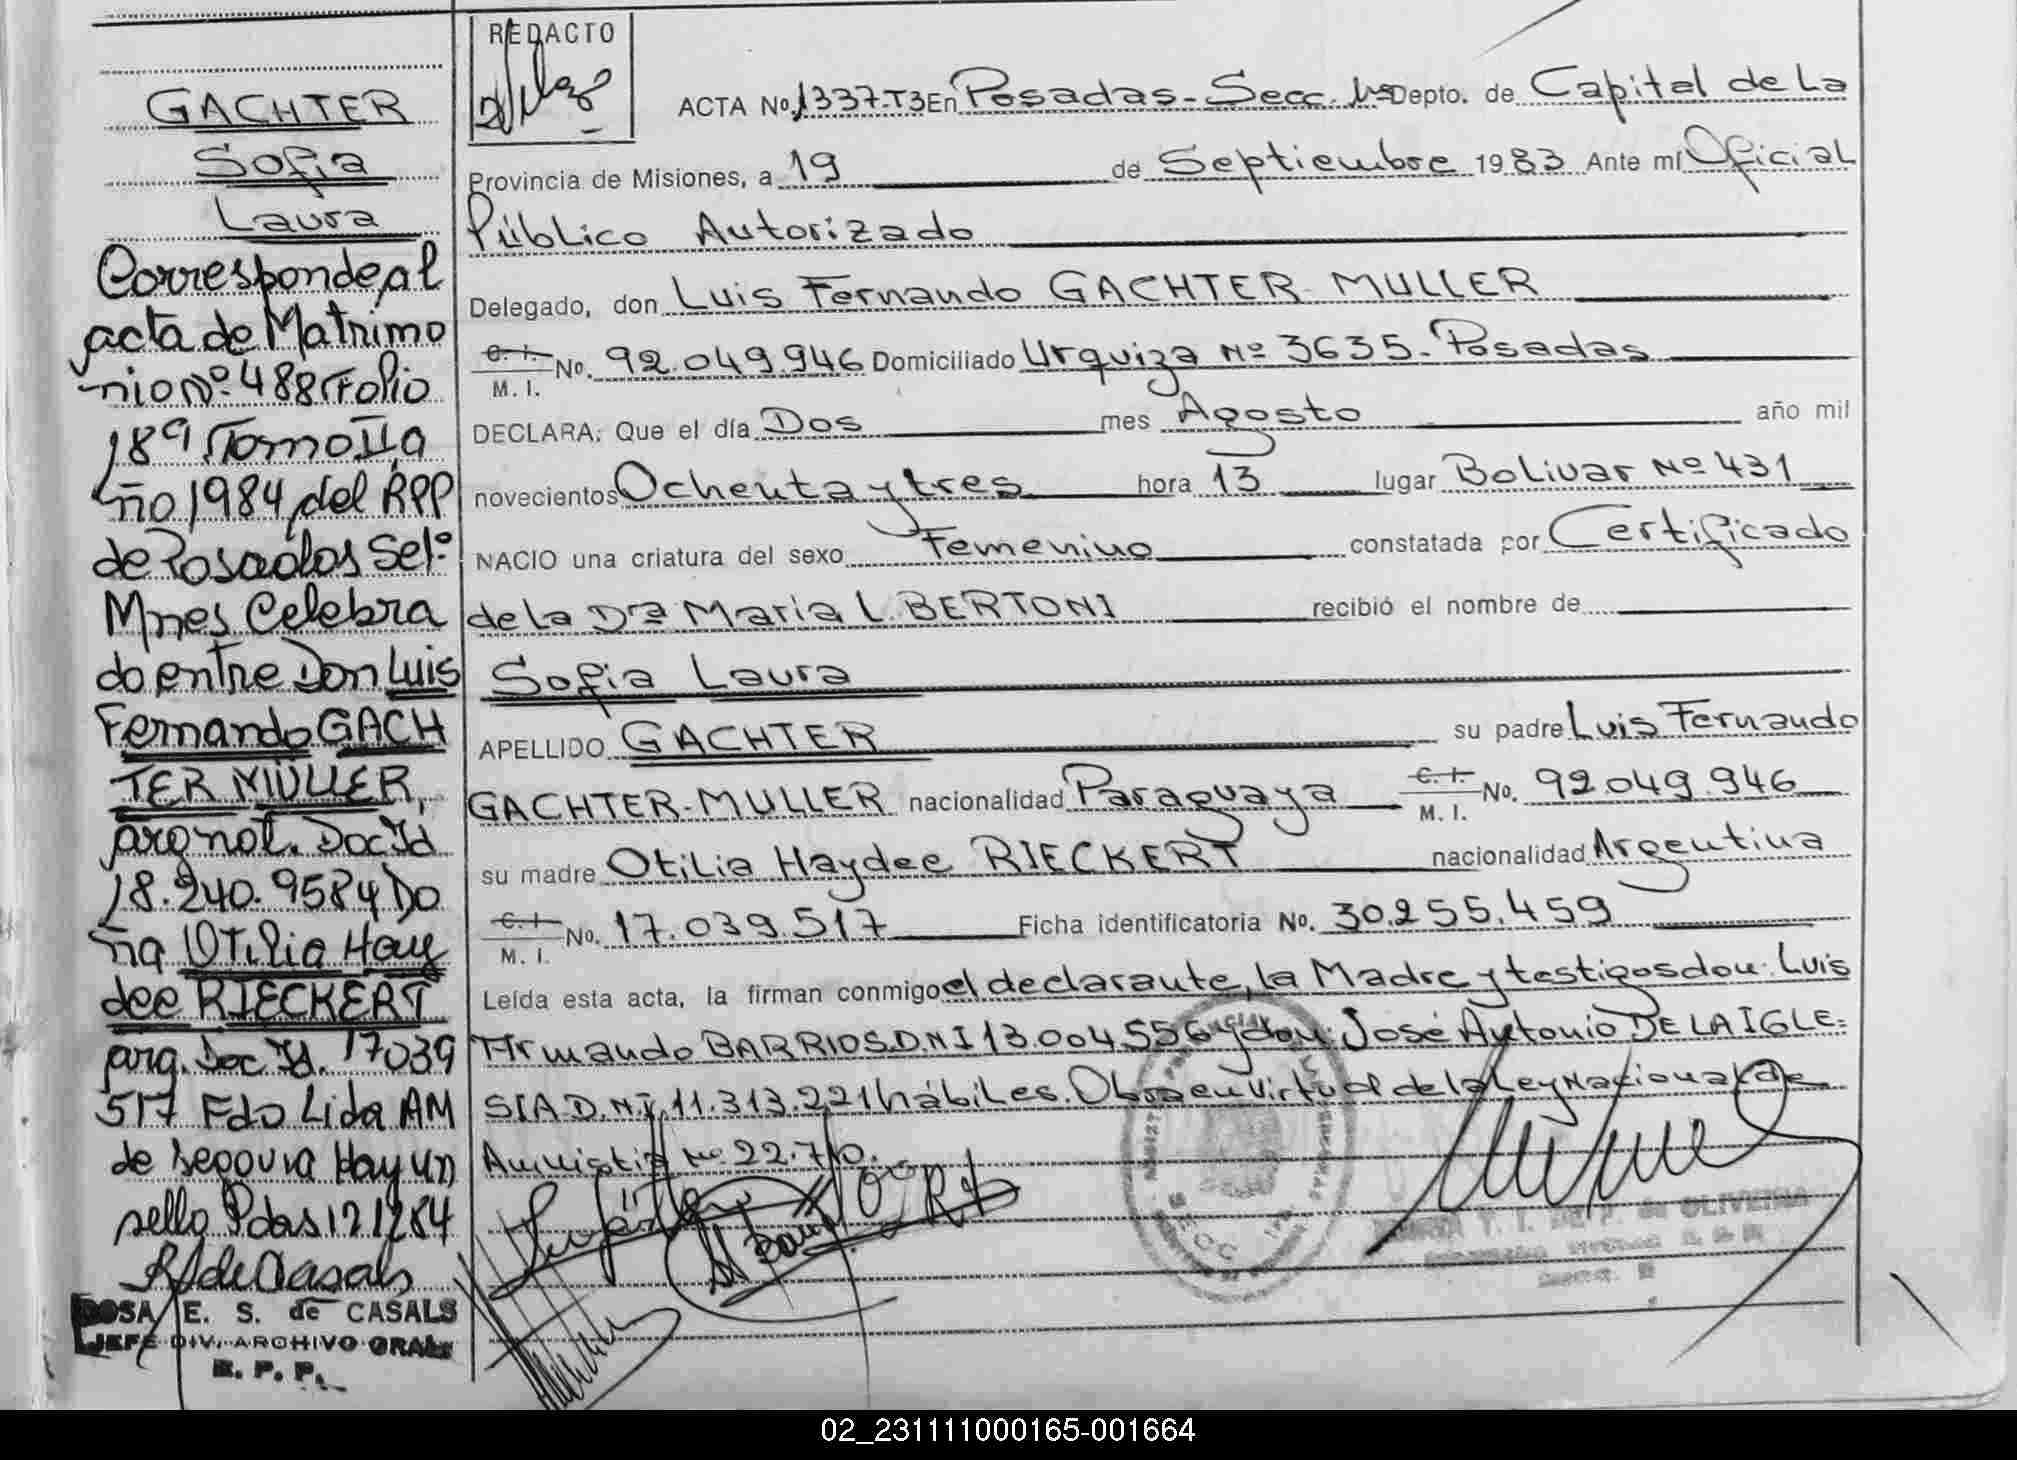 GACHTER
Sofia
Laura
Corresponde al
acta de Matrimo
nio Nº 488 Folio
189 Tomo II a
ño 1984 del RPP
de Posadas Sel.º
Mnes Celebra
do entre Don Luis
Fernando GACH
TER MÜLLER,
arg nat. Doc Id
18.240.958 y Do
ña Otilia Hay
dee RIECKERT
arg. Doc Id. 17039
517 Fdo Lida AM
de Segovia Hay un
sello Pdas 121284
ROSA E. S. de CASALS
JEFE DIV. ARCHIVO GRAL.
R. P. P.
REDACTO
ACTA Nº 1337-T3 En Posadas-Secc. 1ª Depto. de Capital de La
Provincia de Misiones, a 19 de Septiembre 1983 Ante mí Oficial
Público Autorizado
Delegado, don Luis Fernando GACHTER-MULLER
C. I. M. I. No. 92.049.946 Domiciliado Urquiza Nº 3635-Posadas
DECLARA: Que el día Dos mes Agosto año mil
novecientos Ochenta y tres hora 13 lugar Bolivar Nº 431
NACIO una criatura del sexo Femenino constatada por Certificado
de la Dra Maria L. BERTONI recibió el nombre de
Sofia Laura
APELLIDO GACHTER su padre Luis Fernando
GACHTER-MULLER nacionalidad Paraguaya C. I. M. I. No. 92.049.946
su madre Otilia Haydee RIECKERT nacionalidad Argentina
C. I. M. I. No. 17.039.517 Ficha identificatoria No. 30.255.459
Leída esta acta, la firman conmigo el declarante, la Madre y testigos don: Luis
Armando BARRIOS D.N.I 13.004556 y don: José Antonio DE LA IGLE=
SIA D.N.I. 11.313.221 hábiles. Obra en virtud de la Ley Nacional de
Amnistia Nº 22.710.
02_231111000165-001664